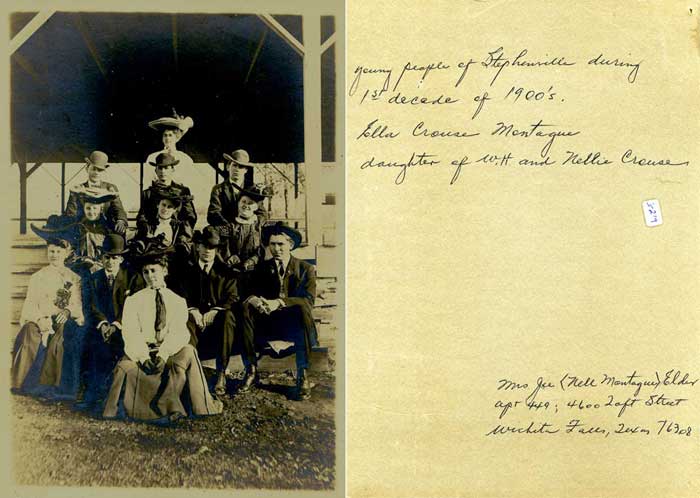 young people of Stephenville during
1st decade of 1900's.
Ella Crouse Montague
daughter of W.H. and Nellie Crouse
5219
Mrs Joe (Nell Montague) Elder
apt 449; 4600 Taft Street
Wichita Falls, Texas 76308